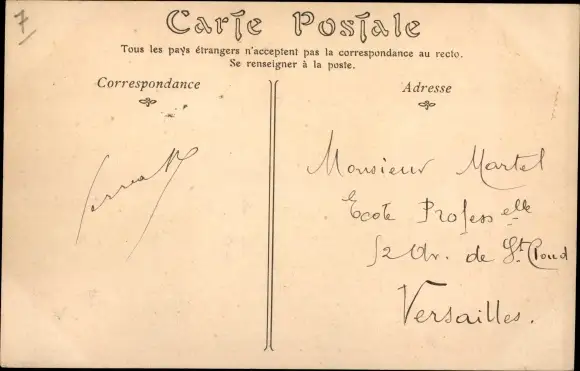 7
Carte Postale
Tous les pays étrangers n'acceptent pas la correspondance au recto.
Se renseigner à la poste.
Correspondance
Adresse
Monsieur Martel
Ecole Profess elle
52 Av. de St. Cloud
Versailles.